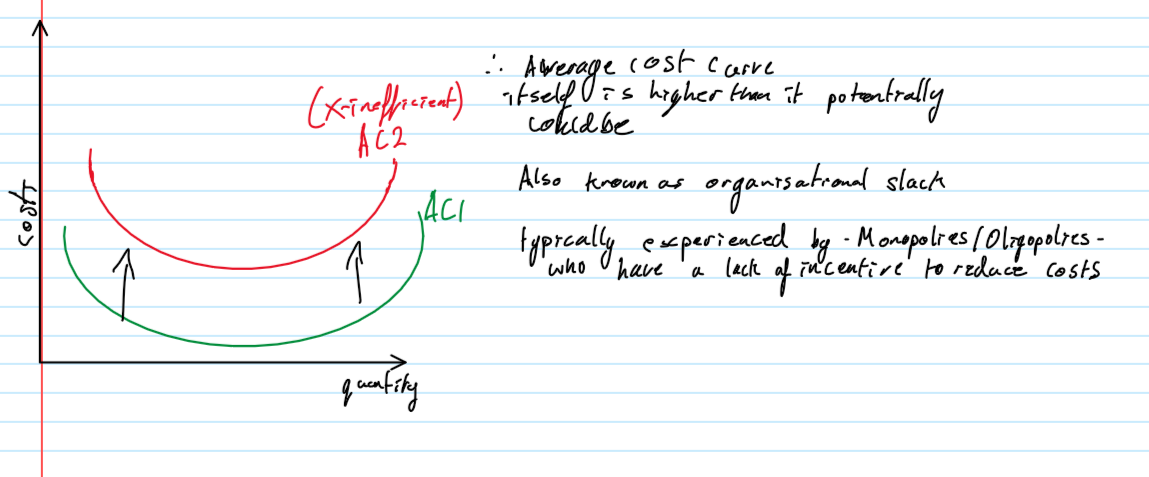 ∴ Average cost curve
itself is higher than it potentially
could be
(X-inefficient)
AC2
Also known as organisational slack
AC1
cost
typically experienced by - Monopolies/Oligopolies -
who have a lack of incentive to reduce costs
quantity